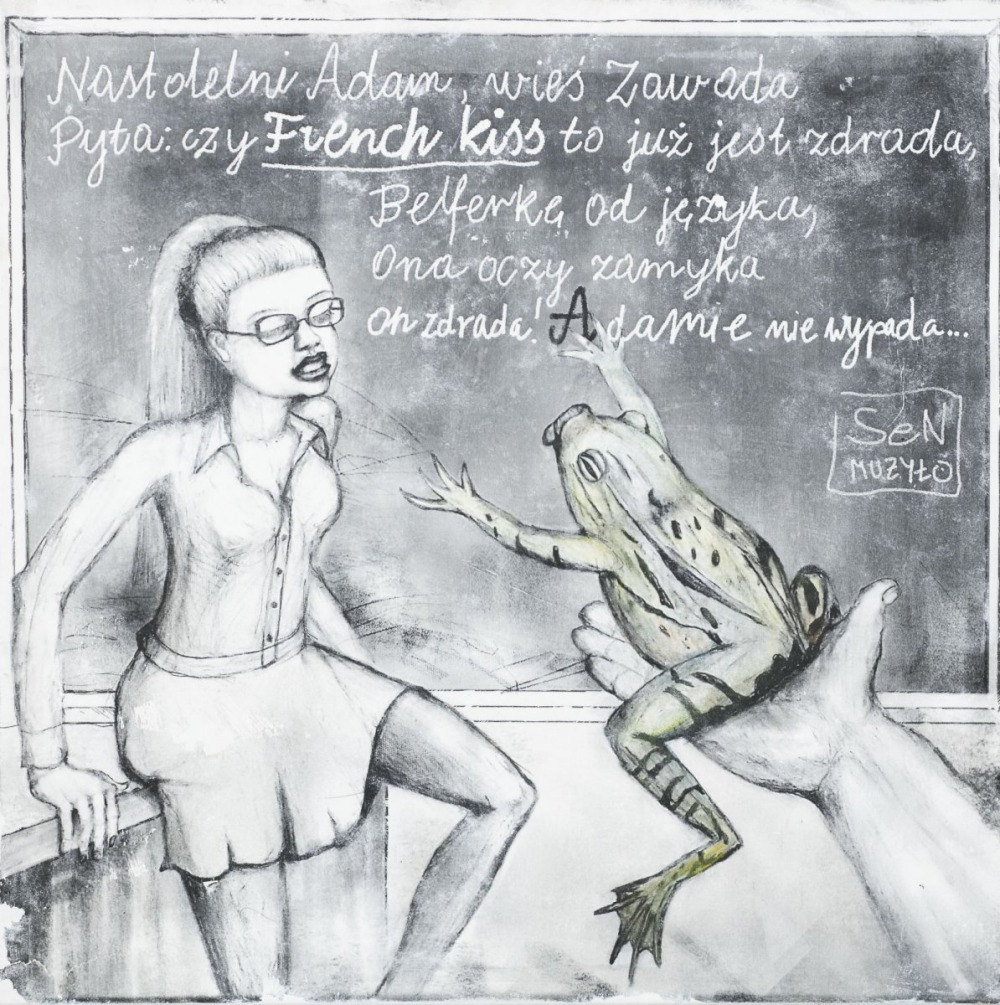 Nastoletni Adam, wieś Zawada
Pyta: czy French kiss to już jest zdrada,
Belferkę od języka,
Ona oczy zamyka
Oh zdrada! Adamie nie wypada...
SeN
MUZYŁÓ